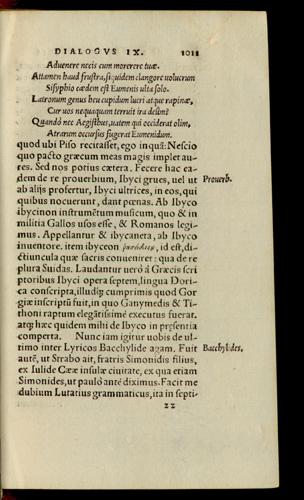 DIALOGVS IX. 1011
Aduenere necis cum morerere tuæ.
Attamen haud frustra, siquidem clangore uolucrum
Sisyphio cædem est Eumenis ulta solo.
Latronum genus heu cupidum lucri atque rapinæ,
Cur uos nequaquam terruit ira deûm?
Quando nec Aegisthus, uatem qui occiderat olim,
Atrarum occursus fugerat Eumenidum.
quod ubi Piso recitasset, ego inquã: Nescio
quo pacto græcum meas magis implet au
res. Sed nos potius cætera. Fecere hac ea
dem de re prouerbium, Ibyci grues, uel ut Prouerb.
ab alijs profertur, Ibyci ultrices, in eos, qui
quibus nocuerunt, dant pœnas. Ab Ibyco
ibycinon instrumẽtum musicum, quo & in
militia Gallos usos esse, & Romanos legi-
mus. Appellantur & ibycanera, ab Ibyco
inuentore. item ibyceon id est, di-
ctiuncula quæ sacris conueniret: qua de re
plura Suidas. Laudantur uerò à Græcis scri
ptoribus Ibyci opera septem, lingua Dori-
ca conscripta, illudq́; cumprimis quod Gor
giæ inscriptũ fuit, in quo Ganymedis & Ti-
thoni raptum elegãtissimè executus fuerat.
atq; hæc quidem mihi de Ibyco in pręsentia
comperta. Nunc iam igitur uobis de ul-
timo inter Lyricos Bacchylide agam. Fuit Bacchylides.
autẽ, ut Strabo ait, fratris Simonidis filius,
ex Iulide Ceæ insulæ ciuitate, ex qua etiam
Simonides, ut pauló antè diximus. Facit me
dubium Lutatius grammaticus, ita in septi-
zz